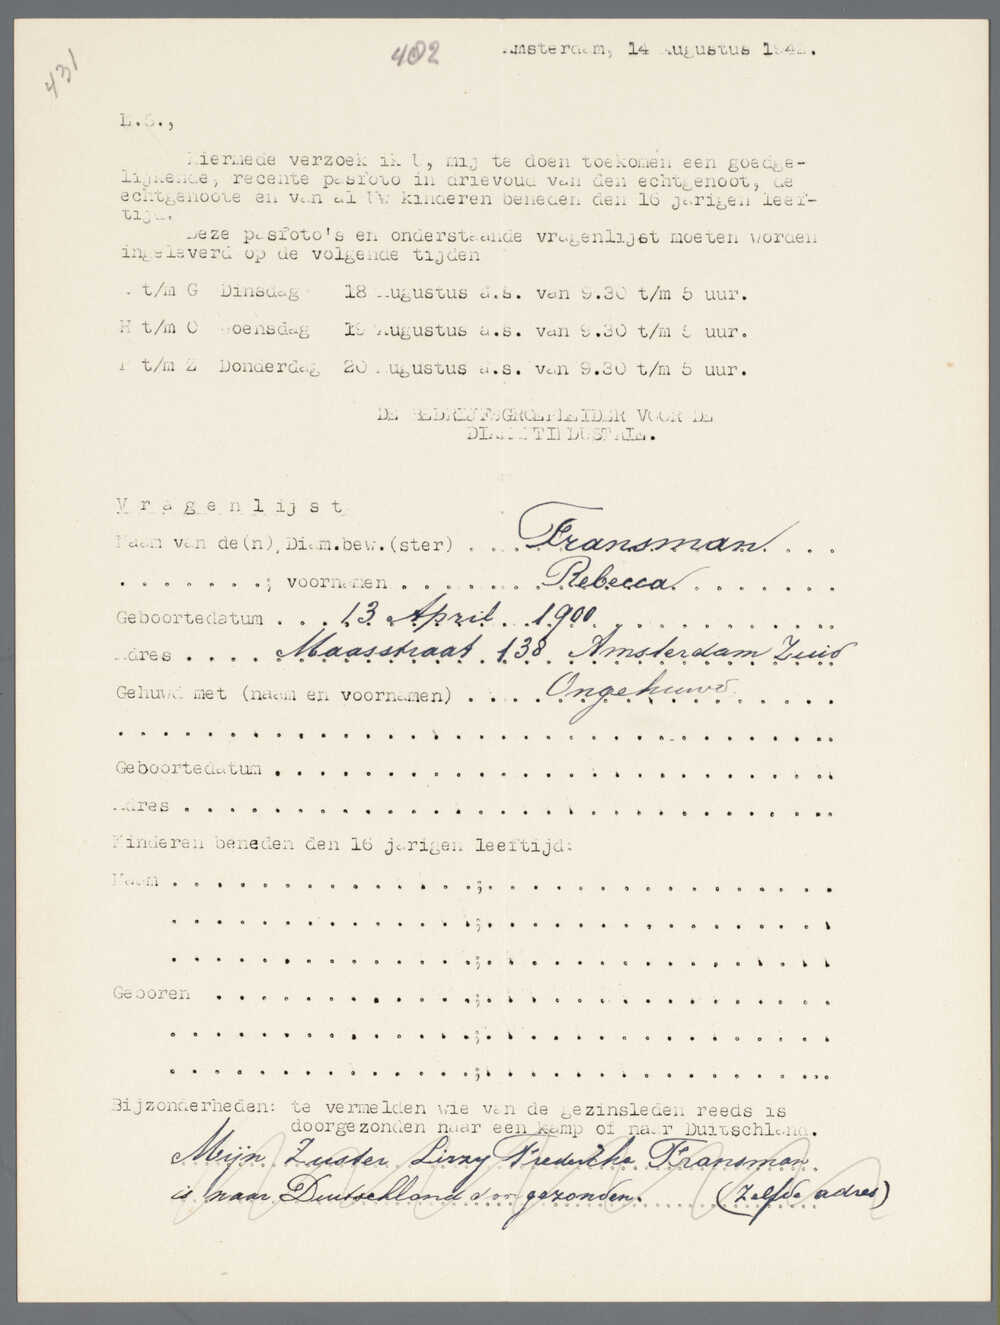 431
402
Amsterdam, 14 Augustus 1942.
L.S.,
Hiermede verzoek ik U, mij te doen toekomen een goedge-
lijkende, recente pasfoto in drievoud van den echtgenoot, de
echtgenoote en van al Uw kinderen beneden den 16 jarigen leef-
tijd.
Deze pasfoto's en onderstaande vragenlijst moeten worden
ingeleverd op de volgende tijden
A t/m G Dinsdag 18 Augustus a.s. van 9.30 t/m 5 uur.
H t/m O Woensdag 19 Augustus a.s. van 9.30 t/m 5 uur.
P t/m Z Donderdag 20 Augustus a.s. van 9.30 t/m 5 uur.
DE BEDRIJFSGROEPLEIDER VOOR DE
DIAMANTINDUSTRIE.
Vragenlijst
Naam van de(n) Diam.bew.(ster) . . . . Fransman . . .
. . . . . . . ; voornamen . . . . . . . Rebecca . . . . . . .
Geboortedatum . . . 13 April 1900 . . . . . . . . . .
Adres . . . . Maasstraat 138 Amsterdam Zuid
Gehuwd met (naam en voornamen) . . . . Ongehuwd . . . . .
. . . . . . . . . . . . . . . . . . . . . . . . . . . . . .
Geboortedatum . . . . . . . . . . . . . . . . . . . . . . .
Adres . . . . . . . . . . . . . . . . . . . . . . . . . . .
Kinderen beneden den 16 jarigen leeftijd:
Naam . . . . . . . . . . . . . . ; . . . . . . . . . . . . . . .
. . . . . . . . . . . . . . ; . . . . . . . . . . . . . . .
. . . . . . . . . . . . . . ; . . . . . . . . . . . . . . .
Geboren . . . . . . . . . . . . ; . . . . . . . . . . . . . . .
. . . . . . . . . . . . . . ; . . . . . . . . . . . . . . .
. . . . . . . . . . . . . . ; . . . . . . . . . . . . . . .
Bijzonderheden: te vermelden wie van de gezinsleden reeds is
doorgezonden naar een kamp of naar Duitschland.
Mijn Zuster Lizzy Frederika Fransman
is naar Duitschland doorgezonden. (Zelfde adres)